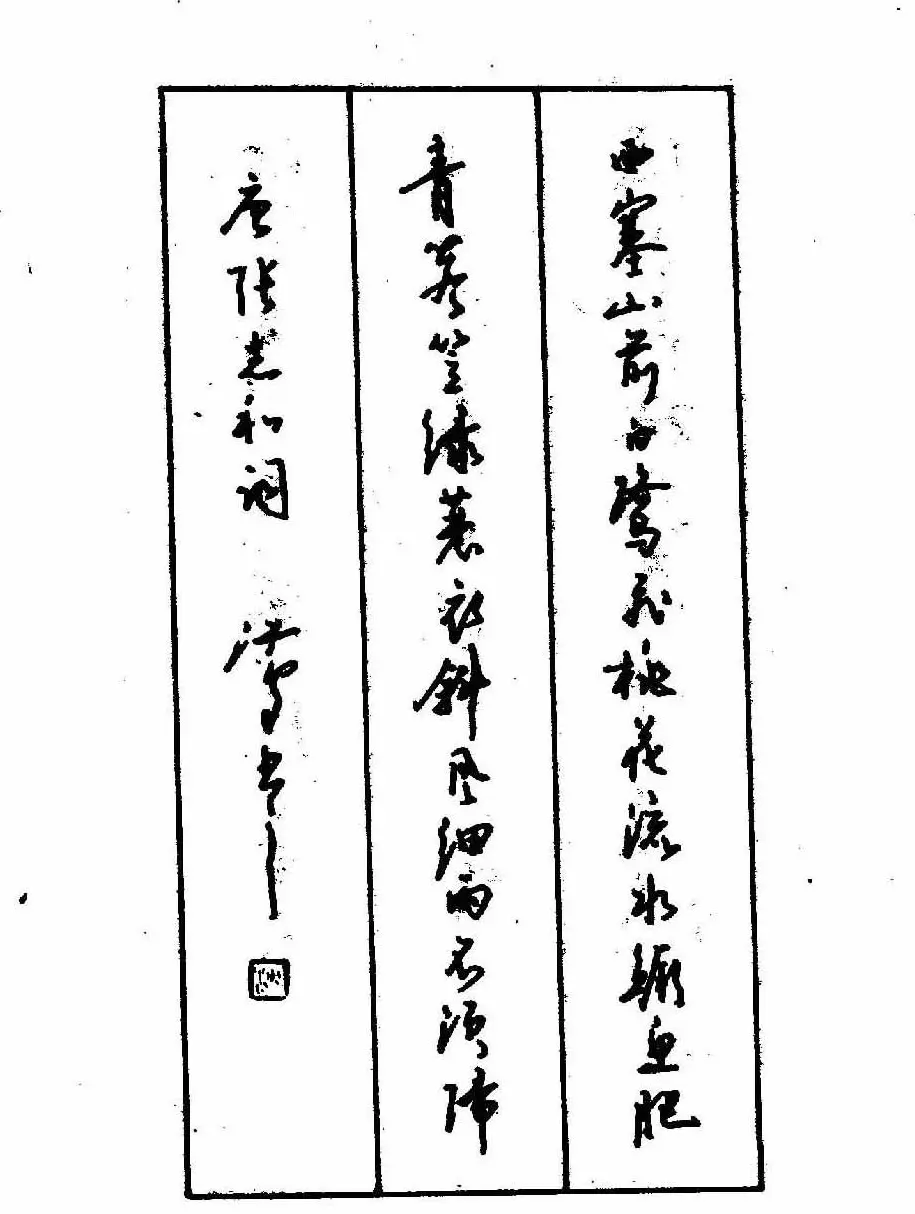 西塞山前白鹭飞桃花流水鳜鱼肥
青箬笠绿蓑衣斜风细雨不须归
唐张志和词